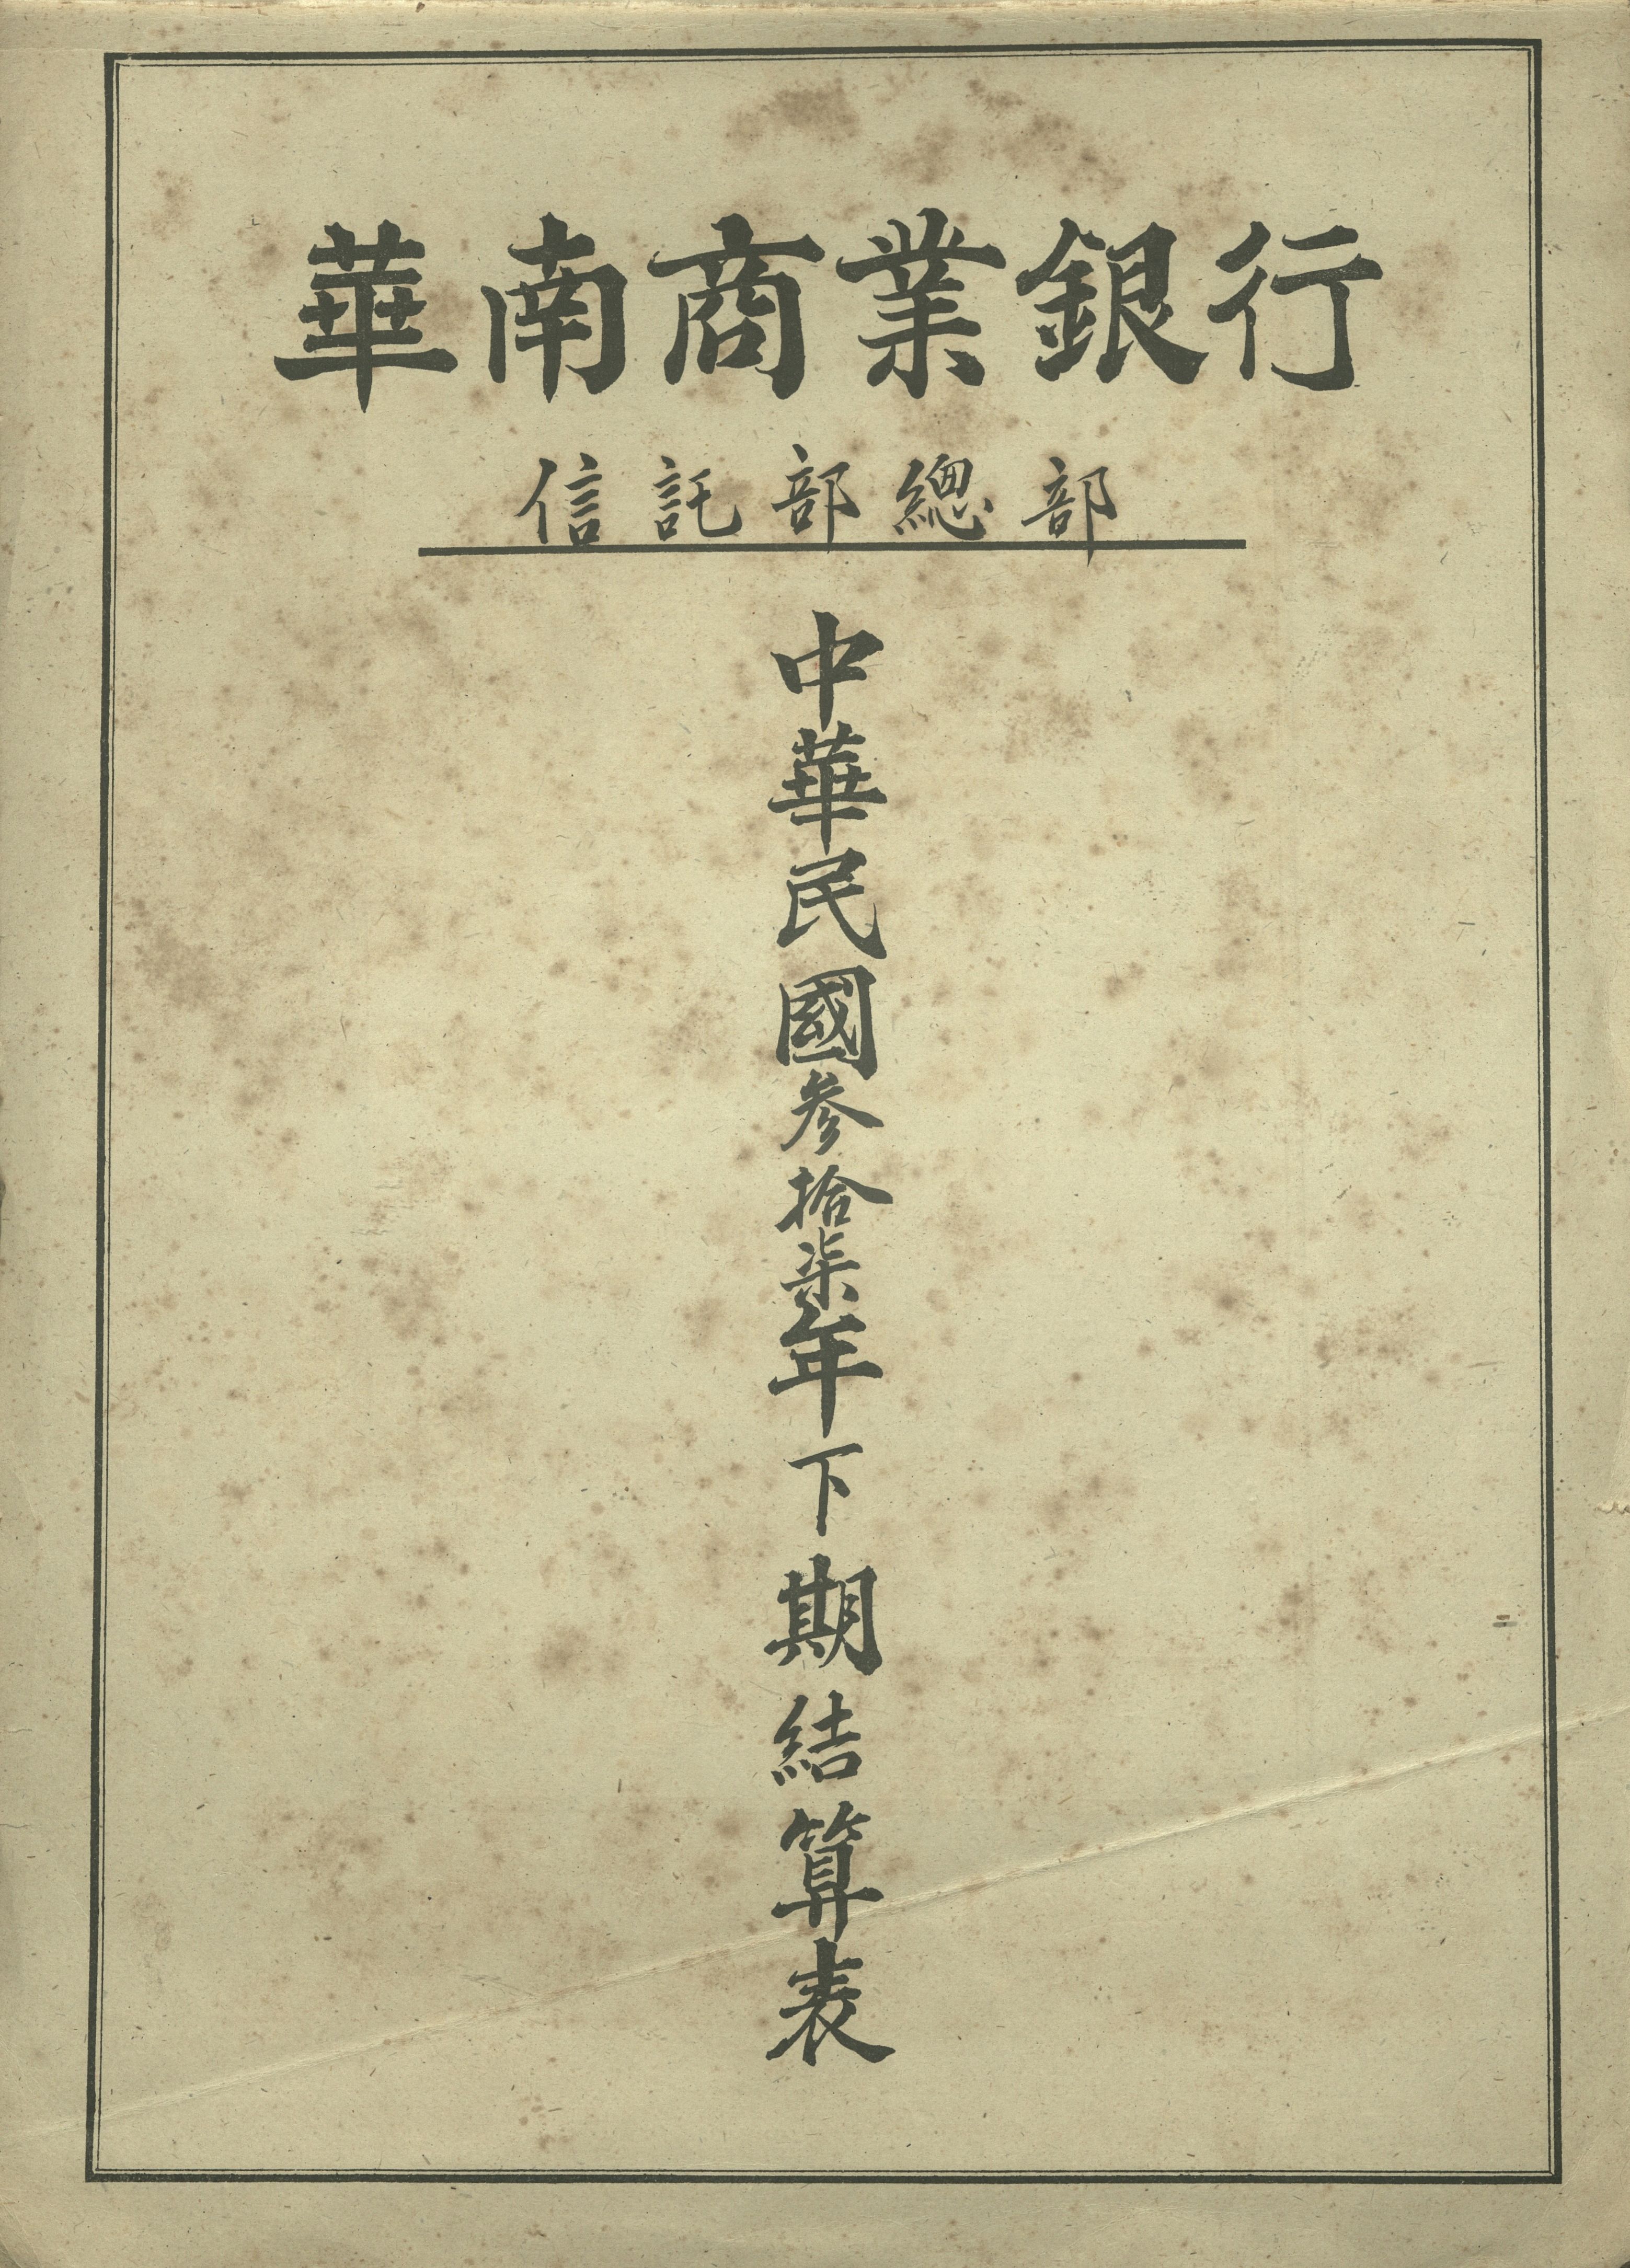 華南商業銀行
信託部總部
中華民國参拾柒年下期結算表